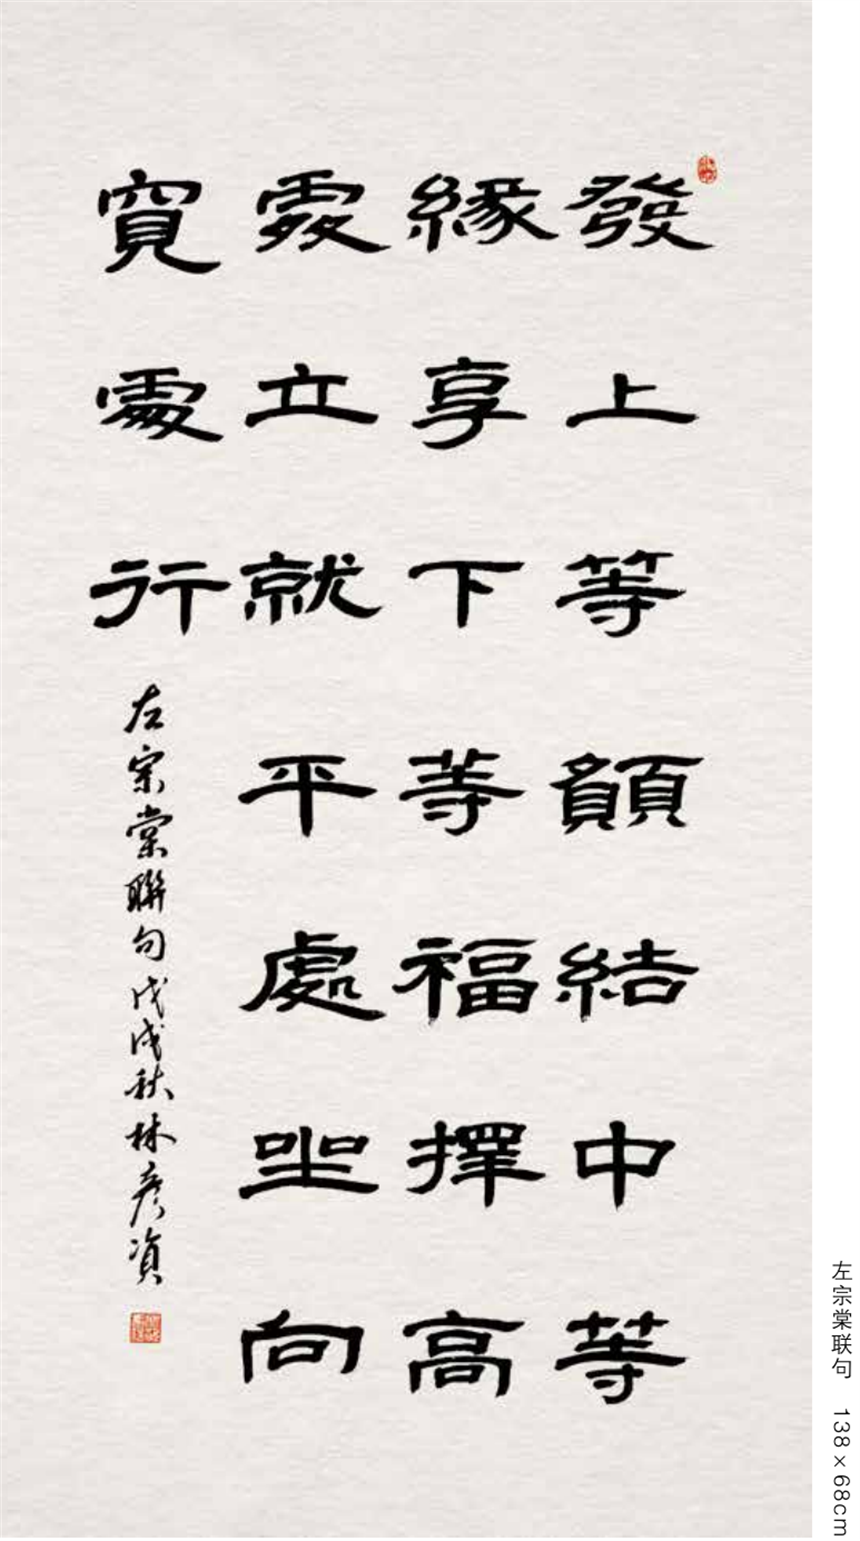 發上等願結中等
緣享下等福擇高
處立就平處坐向
寬處行
左宗棠聯句戊戌秋林彥
左宗棠联句 138×68cm